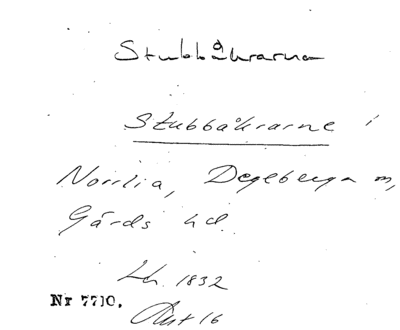 Stubbåkrarna
Stubbåkrarne i
Norrlia, Degeberga sn,
Gärds hd.
Lh. 1832
Nr 7710. Akt 16